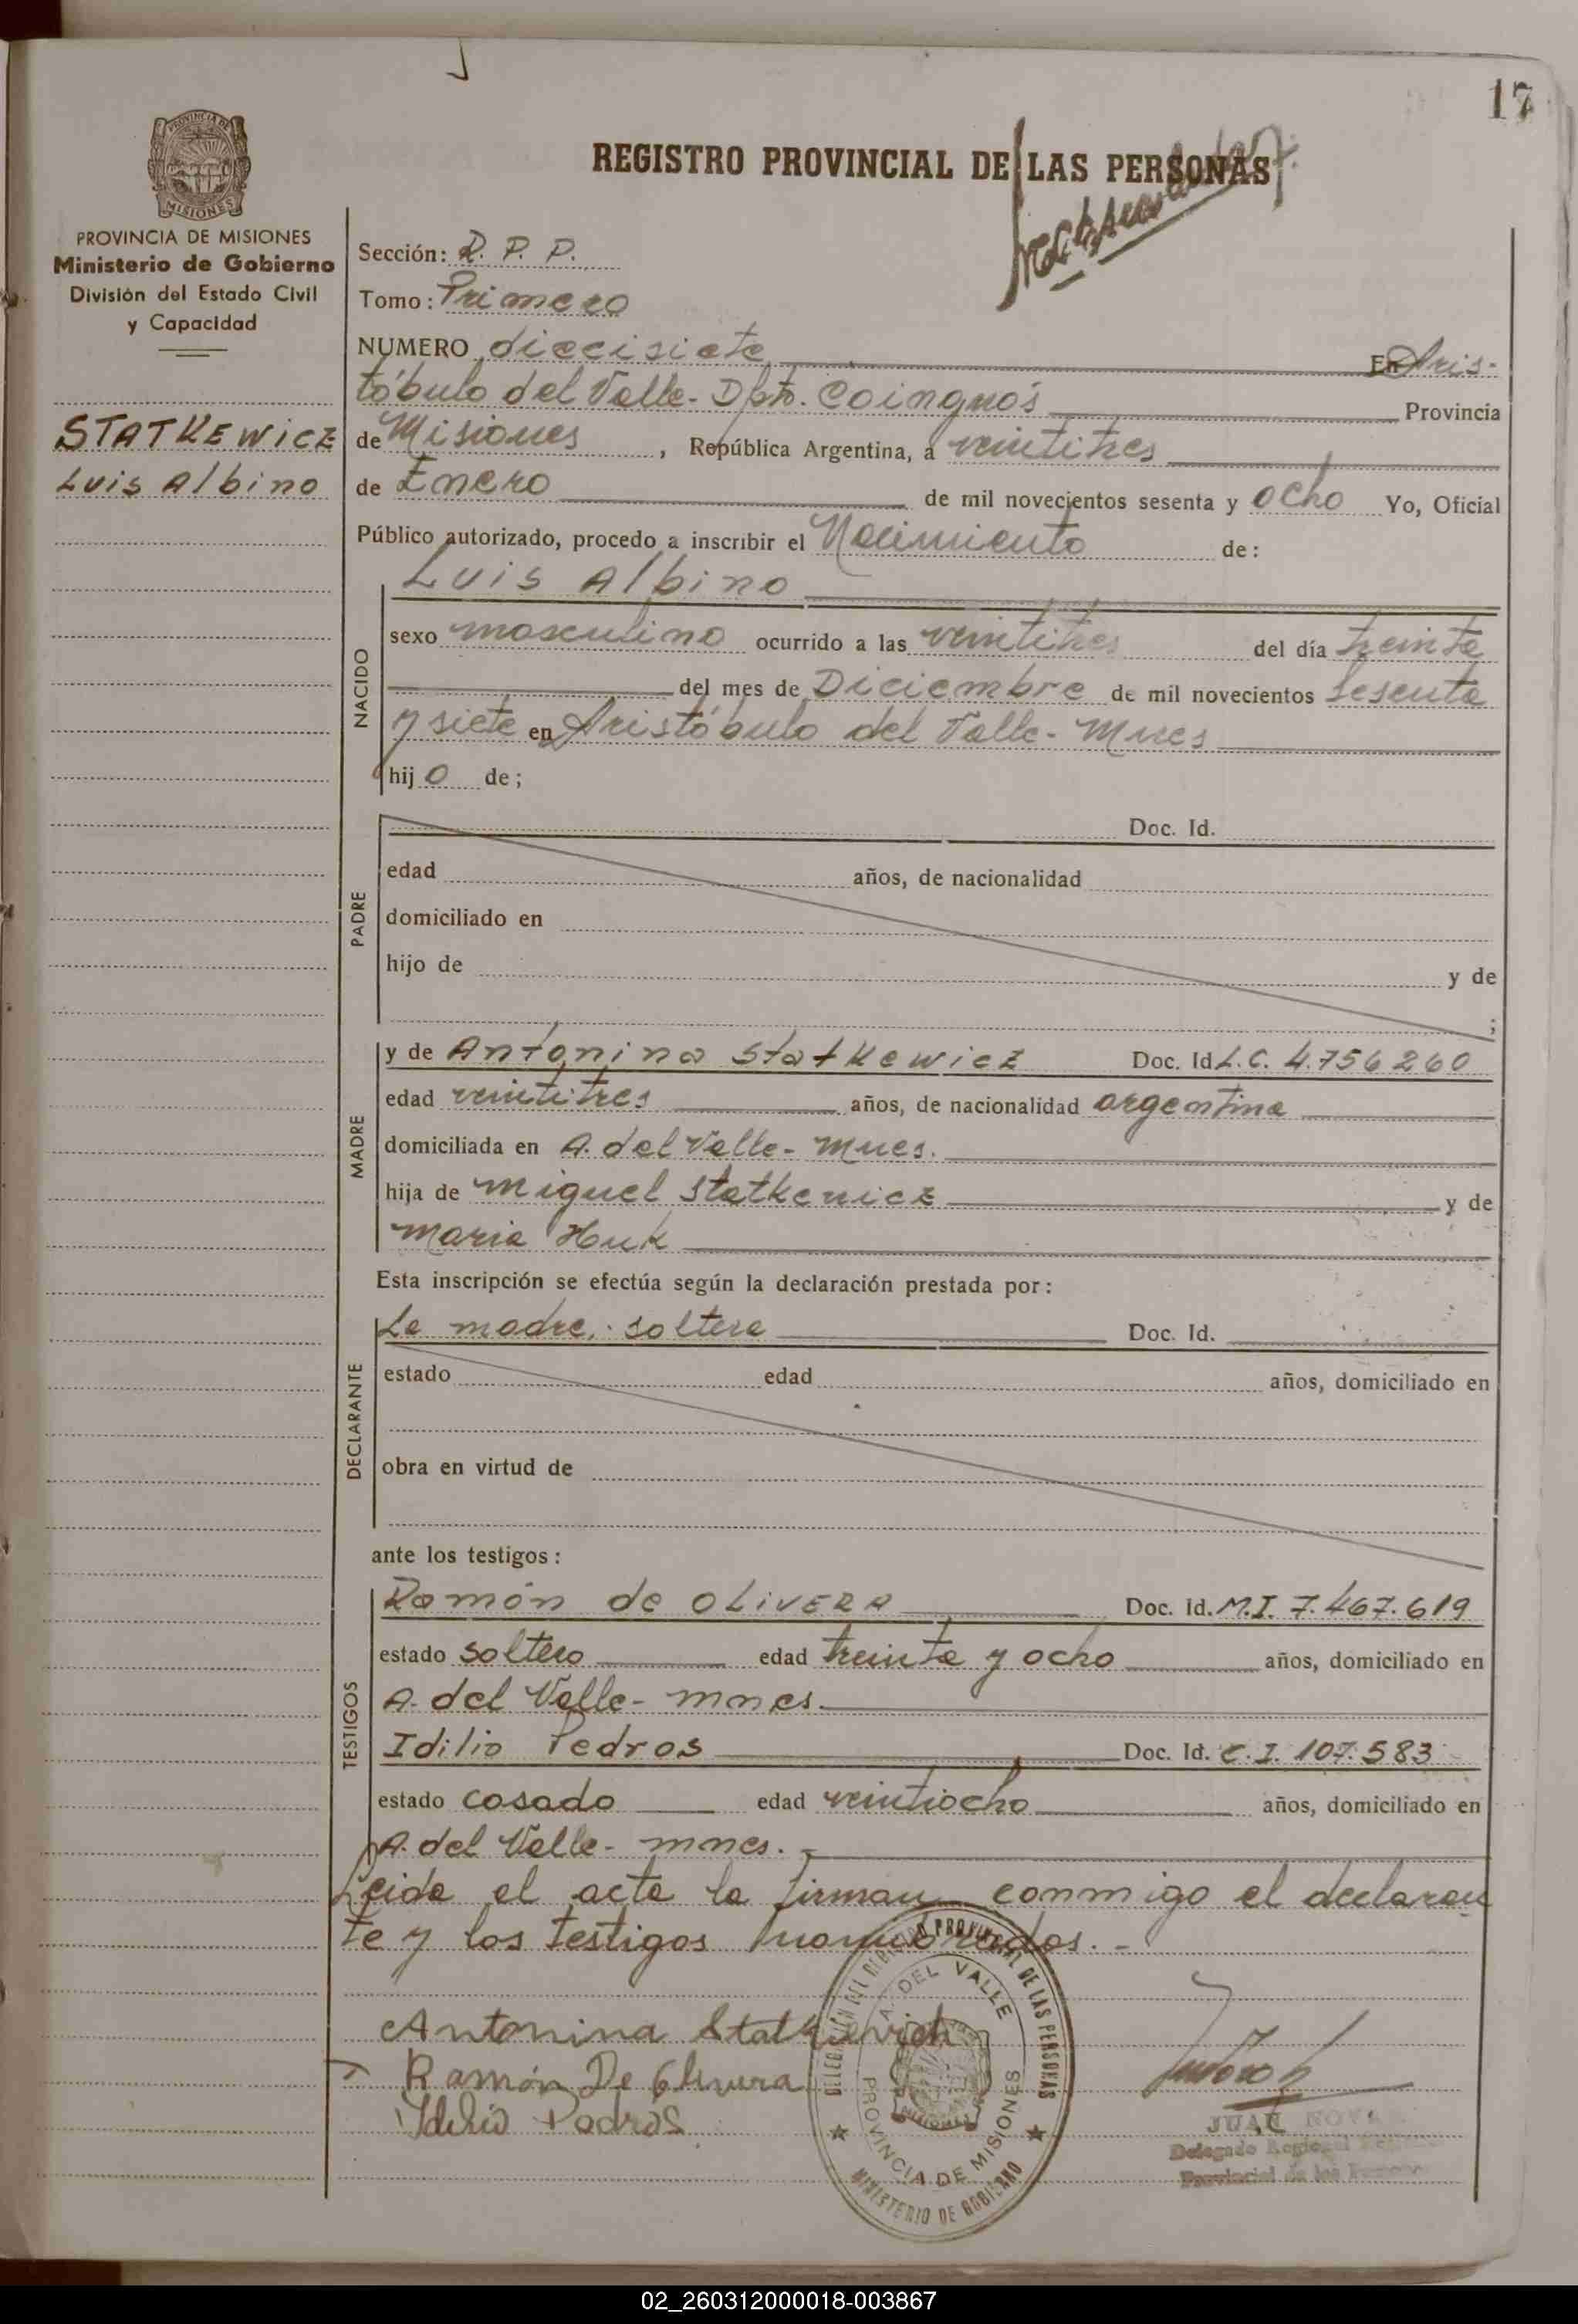 17
REGISTRO PROVINCIAL DE LAS PERSONAS
PROVINCIA DE
MISIONES
PROVINCIA DE MISIONES
Ministerio de Gobierno
División del Estado Civil
y Capacidad
STATKEWICZ
Luis Albino
Sección: R. P. P.
Tomo: Primero
NUMERO diecisiete En Aris-
tóbulo del Valle - Dpto. Cainguás Provincia
de Misiones, República Argentina, a veintitres
de Enero de mil novecientos sesenta y ocho Yo, Oficial
Público autorizado, procedo a inscribir el Nacimiento de:
Luis Albino
NACIDO
sexo masculino ocurrido a las veintitres del día treinta
del mes de Diciembre de mil novecientos sesenta
y siete en Aristóbulo del Valle - Mnes
hijo de;
PADRE
Doc. Id.
edad años, de nacionalidad
domiciliado en
hijo de y de
;
MADRE
y de Antonina Statkewicz Doc. Id L.C. 4.756260
edad veintitres años, de nacionalidad argentina
domiciliada en A. del Valle - Mnes.
hija de Miguel Statkewicz y de
Maria Huk
Esta inscripción se efectúa según la declaración prestada por:
DECLARANTE
La madre, soltera Doc. Id.
estado edad años, domiciliado en
obra en virtud de
ante los testigos:
TESTIGOS
Ramón de OLIVERA Doc. Id. M.I. 7.467.619
estado soltero edad treinta y ocho años, domiciliado en
A. del Valle - mnes.
Idilio Pedros Doc. Id. C.I. 107.583
estado casado edad veintiocho años, domiciliado en
A. del Valle - mnes.
Leida el acta la firman conmigo el declaran
te y los testigos nombrados. -
Antonina Statkievich
Ramón De Olivera
Idilio Pedros
DELEGACIÓN DEL REGISTRO PROVINCIAL DE LAS PERSONAS
A. DEL VALLE
PROVINCIA DE MISIONES
MINISTERIO DE GOBIERNO
JUAN
Delegado Regional
Provincial de las
02_260312000018-003867